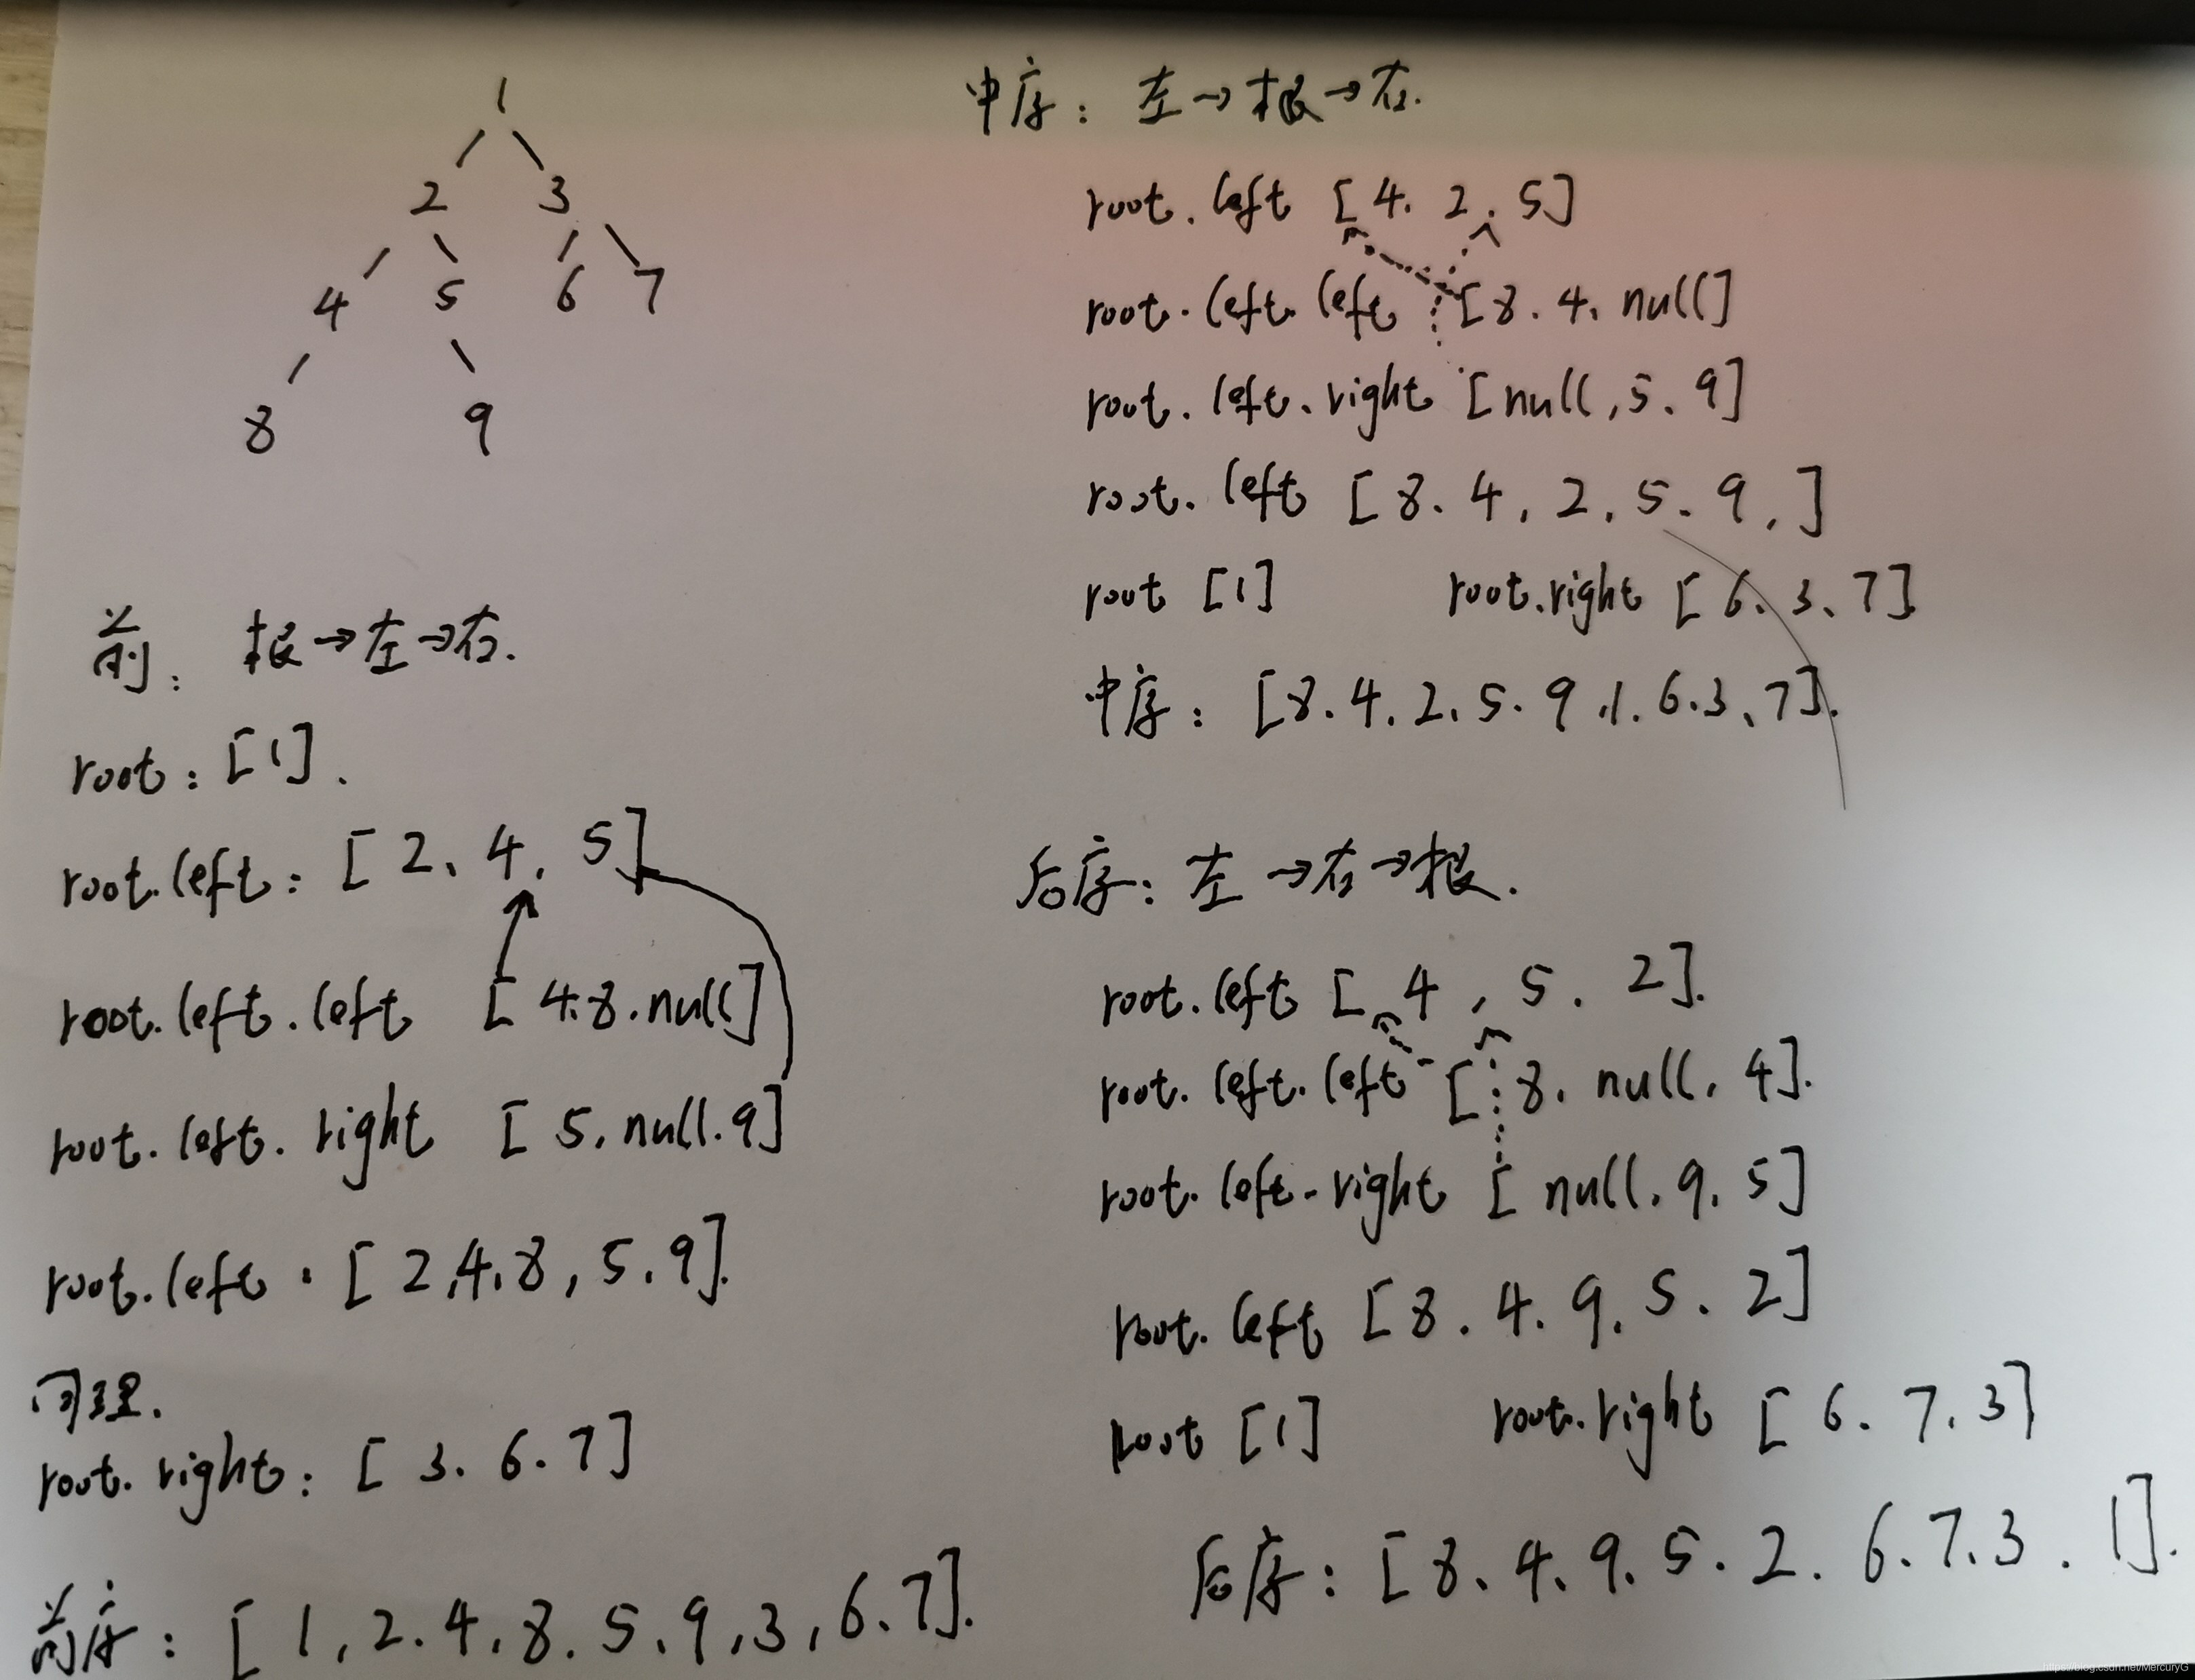 1
2 3
4 5 6 7
8 9
前: 根→左→右.
root: [1].
root.left: [2、4, 5]
root.left.left [4.8.null]
root.left.right [5, null.9]
root.left: [2,4.8, 5.9].
同理.
root.right: [3.6.7]
前序: [1,2.4,8.5、9,3,6.7].
中序: 左→根→右.
root.left [4.2.5]
root.left.left [8.4, null]
root.left.right [null,5.9]
root.left [8.4,2.5.9,]
root [1] root.right [6、3、7]
中序: [8.4.2.5.9.1.6.3、7].
后序: 左→右→根.
root.left [4, 5.2].
root.left.left [8. null, 4].
root.left.right [null.9.5]
root.left [8.4.9.5.2]
root [1] root.right [6.7.3]
后序: [8、4、9.5.2.6.7.3.1].
https://blog.csdn.net/MercuryG